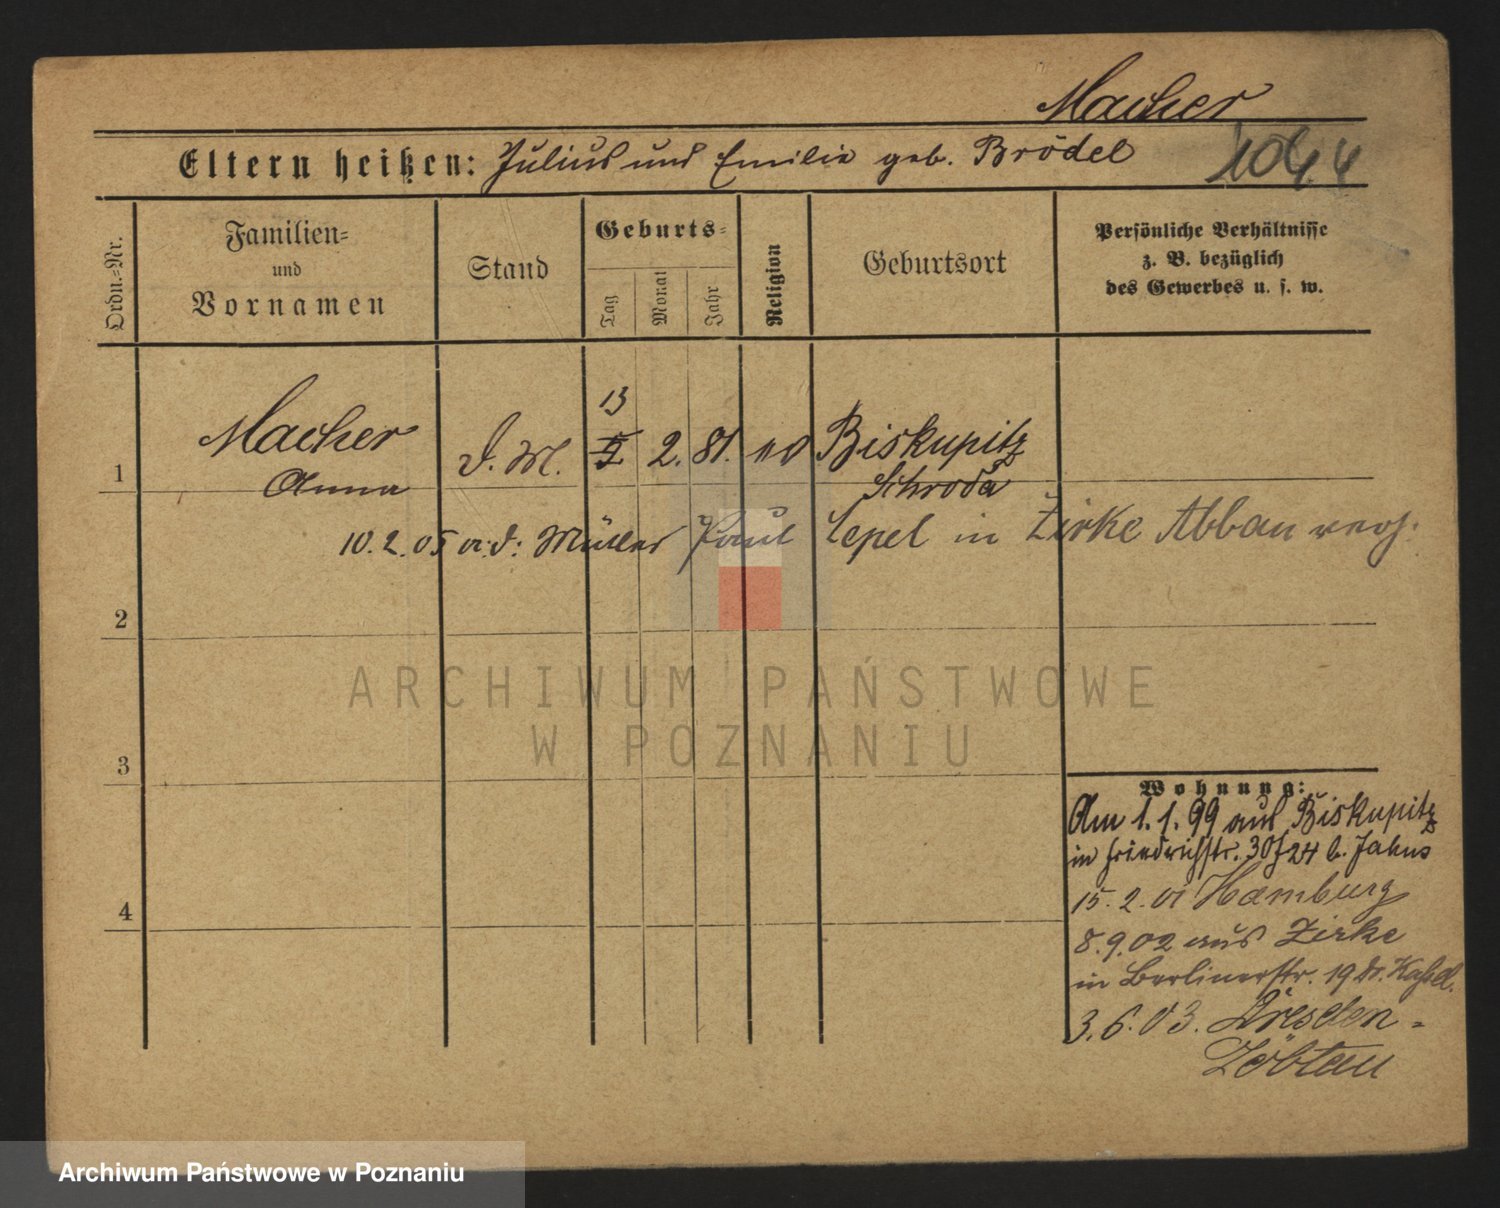 Macher
Eltern heißen: Julius und Emilie geb. Brödel
Ordn.-Nr.
Familien-
und
Vornamen
Stand
Geburts-
Tag
Monat
Jahr
Religion
Geburtsort
Persönliche Verhältnisse
z. B. bezüglich
des Gewerbes u. s. w.
13
1 Macher D. M. 2. 81. Biskupitz
Anna Schroda
10.2.05 a. d. Müller Paul Lepel in Zirke Abbau verh.
2
3
4
Wohnung:
Am 1.1.99 aus Biskupitz
in Friedrichstr. 30 b. Jahns
15.2.01 Hamburg
8.9.02 aus Zirke
in Berlinerstr. 19
3.6.03. Dresden-
Löbtau
ARCHIWUM PAŃSTWOWE
W POZNANIU
Archiwum Państwowe w Poznaniu